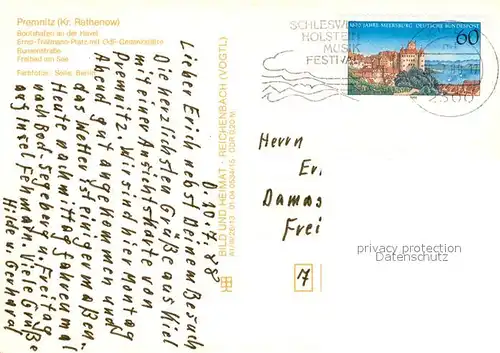 Premnitz (Kr. Rathenow)
Bootshafen an der Havel
Ernst-Thälmann-Platz mit OdF-Gedenkstätte
Bunsenstraße
Freibad am See
Farbfotos:
BILD UND HEIMAT · REICHENBACH (VOGTL)
DDR 0,20 M
D. 10.7.88
Lieber Erich nebst Deinem Besuch
Die herzlichsten Grüße aus Kiel
mit einer Ansichtskarte von
Premnitz. Wir sind hier Montag
Abend gut angekommen und
das Wetter ist einigermaßen.
Heute nachmittag fahren mal
nach Bad-Segeberg u. Freitag
auf Insel Fehmarn. Viele Grüße
Hilde u. Gerhard
SCHLESWIG
HOLSTEIN
MUSIK
FESTIVAL
1000 JAHRE MEERSBURG DEUTSCHE BUNDESPOST
60
2300
Herrn
Er.
Damas
Frei
privacy protection
Datenschutz
17